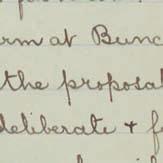 rm at Bunc
the proposal
deliberate + f